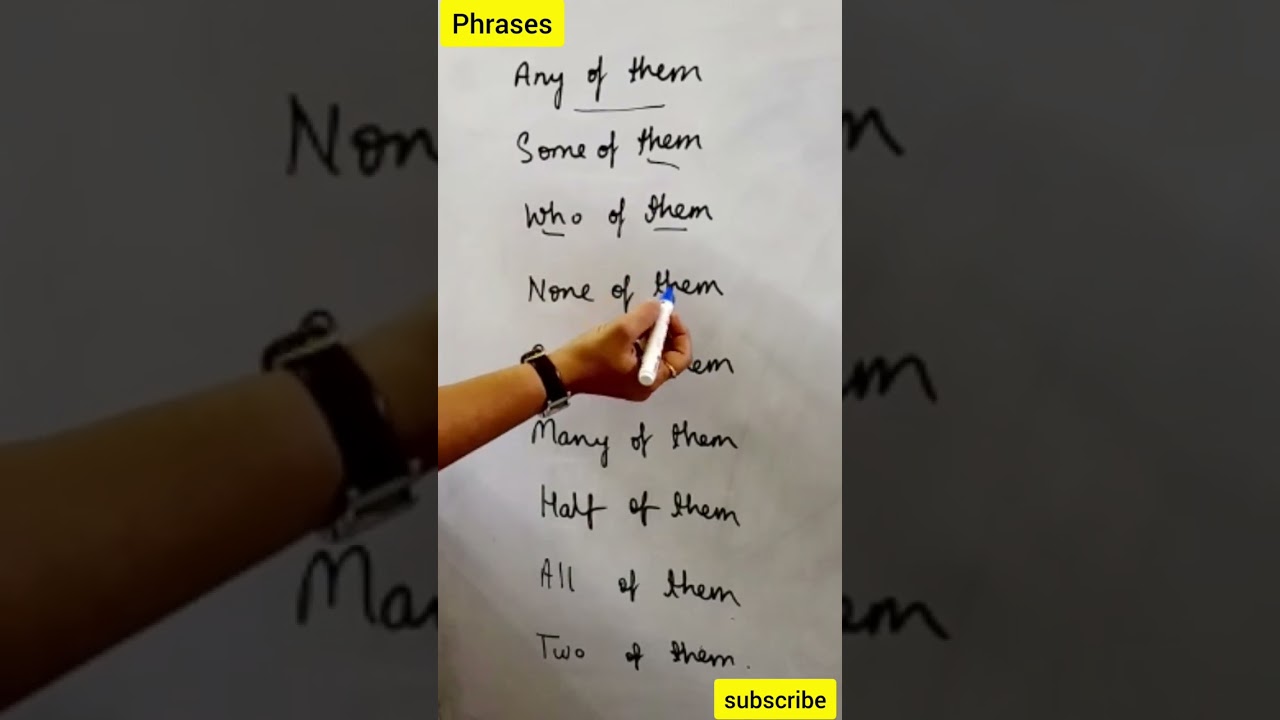 Phrases
Any of them
Some of them
Who of them
None of them
Many of them
Half of them
All of them
Two of them.
subscribe